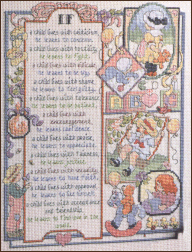 IF
a child lives with criticism,
he learns to condemn.
a child lives with hostility,
he learns to fight.
a child lives with ridicule,
he learns to be shy.
a child lives with shame,
he learns to feel guilty.
a child lives with tolerance,
he learns to be patient.
a child lives with
encouragement,
he learns confidence.
a child lives with praise,
he learns to appreciate.
a child lives with fairness,
he learns justice.
a child lives with security,
he learns to have faith.
a child lives with approval,
he learns to like himself.
a child lives with acceptance
and friendship,
he learns to find love in the
world.